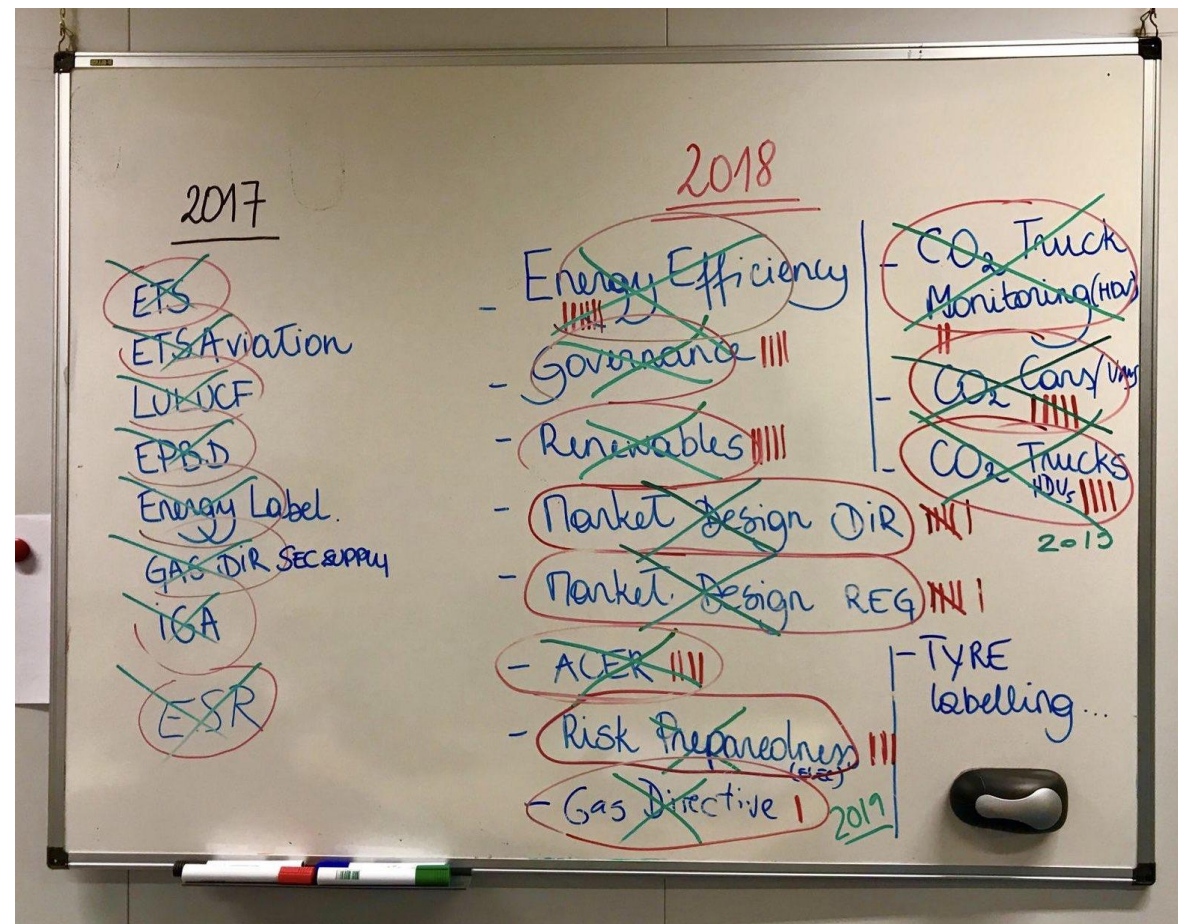 2017
ETS
ETS Aviation
LULUCF
EPBD
Energy Label.
GAS DIR SEC SUPPLY
iGA
ESR
2018
- Energy Efficiency
- Governance
- Renewables
- Market Design DIR
- Market Design REG
- ACER
- Risk Preparedness
(ELEC)
- Gas Directive
2019
- CO2 Truck
Monitoring (HDV)
- CO2 Cars/Vans
- CO2 Trucks
HDVs
2019
- TYRE
labelling...